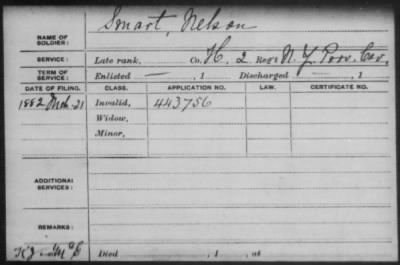 NAME OF SOLDIER: Smart, Nelson
SERVICE: Late rank, Co. H, 2 Reg't N. Y. Prov. Cav.
TERM OF SERVICE: Enlisted —, 1 Discharged , 1
DATE OF FILING. CLASS. APPLICATION NO. LAW. CERTIFICATE NO.
1882 Mch. 21 Invalid, 443756
Widow,
Minor,
ADDITIONAL SERVICES:
REMARKS:
Died , 1 , at